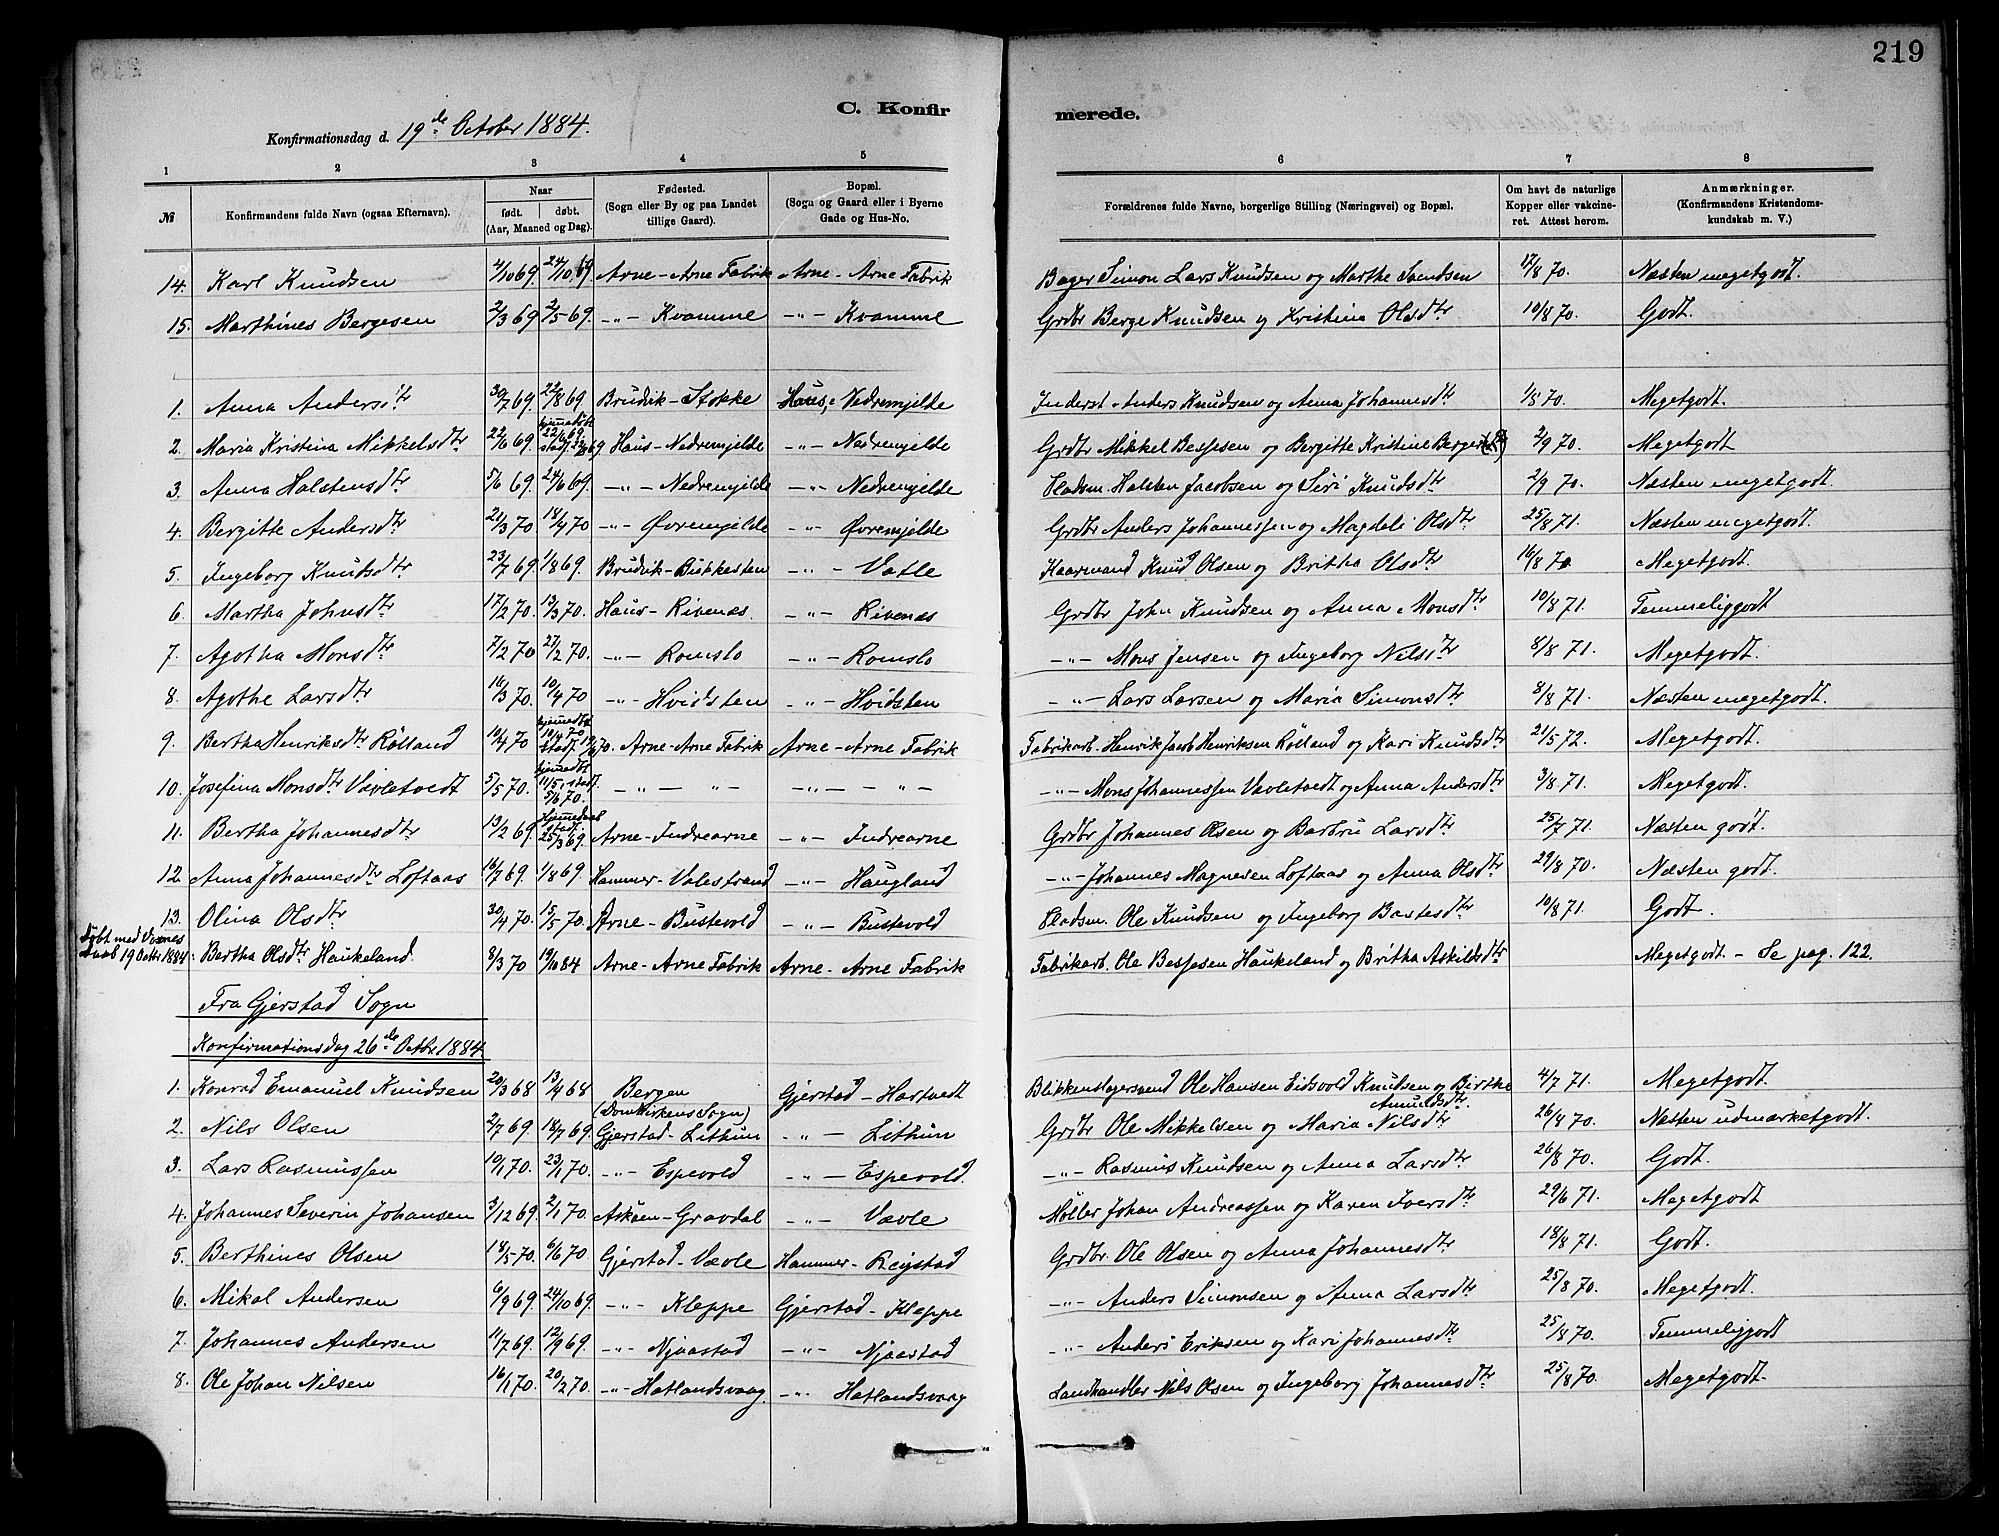 219
C. Konfir merede.
Konfirmationsdag d. 19de October 1884.
1 2 3 4 5 6 7 8
№ Konfirmandens fulde Navn (ogsaa Efternavn). Naar født. døbt. (Aar, Maaned og Dag). Fødested. (Sogn eller By og paa Landet tillige Gaard). Bopæl. (Sogn og Gaard eller i Byerne Gade og Hus-No. Forældrenes fulde Navne, borgerlige Stilling (Næringsvei) og Bopæl. Om havt de naturlige Kopper eller vakcineret. Attest herom. Anmærkninger. (Konfirmandens Kristendomskundskab m. V.)
14. Karl Knudsen 4/10 69. 24/10 69. Arne-Arne Fabrik Arne-Arne Fabrik Bager Simon Lars Knudsen og Marthe Svendsen 17/8 70. Næsten megetgodt.
15. Marthines Bergesen 2/3 69 2/5 69. -"- Kvamme -"- Kvamme Grdbr Berge Knudsen og Kristina Olsdtr 10/8 70. Godt.
1. Anna Andersdtr 30/7 69. 22/8 69. Brudvik-Stokke Haus, Nedremjelde Inderst Anders Knudsen og Anna Johannesdtr 1/5 70. Megetgodt.
2. Maria Kristina Mikkelsdtr 22/6 69. hjemmedøbt 22/6 69 stadf. Haus-Nedremjelde -"- Nedremjelde Grdbr Mikkel Bessesen og Bergitte Kristine Berger 2/9 70. Megetgodt
3. Anna Halstensdtr 5/6 69. 24/6 69. -"- Nedremjelde -"- Nedremjelde Pladsm. Halsten Jacobsen og Siri Knudsdtr 2/9 70. Næsten megetgodt.
4. Bergitte Andersdtr 21/3 70. 18/4 70 -"- Øvremjelde -"- Øvremjelde Grdbr Anders Johannessen og Magdeli Olsdtr 25/8 71. Næsten megetgodt.
5. Ingeborg Knudsdtr 23/7 69. 1/8 69. Brudvik-Birkesten -"- Vatle Kaarmand Knud Olsen og Britha Olsdtr 16/8 70 Megetgodt.
6. Martha Johnsdtr 17/2 70. 13/3 70. Haus-Rivenæs. -"- Rivenæs Grdbr John Knudsen og Anna Monsdtr 10/8 71. Temmeliggodt
7. Agotha Monsdtr 7/2 70 27/2 70. -"- Romslo -"- Romslo -"- Mons Jensen og Ingeborg Nilsdtr 8/8 71. Megetgodt.
8. Agothe Larsdtr 16/3 70. 10/4 70 -"- Hvidsten -"- Hvidsten -"- Lars Larsen og Maria Simonsdtr 8/8 71. Næsten megetgodt.
9. Bertha Henriksdtr Rölland 10/4 70 hjemmedøbt 10/4 70 stadf. Arne-Arne Fabrik Arne-Arne Fabrik Fabrikarb. Henrik Jacob Henriksen Rölland og Kari Knudsdtr 21/5 72. Megetgodt.
10. Josefina Monsdtr Vavletvedt 5/5 70. hjemmedøbt 11/5, stadf. 5/6 70. -"- -"- -"- -"- -"- Mons Johannessen Vavletvedt og Anna Andersdtr 3/8 71. Megetgodt.
11. Bertha Johannesdtr 13/2 69 Hjemmedaab stadf. 25/3 69. Arne-Indrearne -"- Indrearne Grdbr Johannes Olsen og Barbru Larsdtr 25/7 71. Næsten godt.
12. Anna Johannesdtr Loftaas 16/7 69. 1/8 69 Hammer-Valestrand -"- Haugland -"- Johannes Magnesen Loftaas og Anna Olsdtr 29/8 70. Næsten godt.
13. Olina Olsdtr 30/4 70. 15/5 70. Arne-Bustevold -"- Bustevold Pladsm. Ole Knudsen og Ingeborg Bastesdtr 10/8 71. Godt.
Døbt med Voxnes Daab 19 Octbr 1884. Bertha Olsdtr Haukeland. 8/3 70 19/10 84 Arne-Arne Fabrik Arne-Arne Fabrik Fabrikarb. Ole Bessesen Haukeland og Britha Askildsdtr Megetgodt - Se pag. 122.
Fra Gjerstad Sogn
Konfirmationsdag 26de Octbr 1884
1. Konrad Emanuel Knudsen 20/3 68 13/4 68 Bergen (Domkirkens Sogn) Gjerstad-Hartvedt Blikkenslagersvend Ole Hansen Eidsvold Knudsen og Birthe Amundsdtr. 4/7 71. Megetgodt.
2. Nils Olsen 2/7 69. 18/7 69. Gjerstad-Lithun -"- Lithun Grdbr Ole Mikkelsen og Maria Nilsdtr 26/8 70. Næsten udmærketgodt.
3. Lars Rasmussen 10/1 70. 23/1 70. -"- Espevold -"- Espevold. -"- Rasmus Knudsen og Anna Larsdtr 26/8 70. Godt.
4. Johannes Severin Johansen 3/12 69. 2/1 70. Askøen-Gravdal -"- Vævle Møller Johan Andreassen og Karen Iversdtr 29/6 71. Megetgodt
5. Berthines Olsen 18/5 70. 6/6 70 Gjerstad-Vævle Hammer-Reigstad Grdbr. Ole Olsen og Anna Johannesdtr 18/8 71. Godt.
6. Mikal Andersen 6/9 69. 24/10 69. -"- Kleppe Gjerstad-Kleppe -"- Anders Simonsen og Anna Larsdtr 25/8 70. Megetgodt.
7. Johannes Andersen 11/7 69. 12/9 69. -"- Njaastad -"- Njaastad -"- Anders Eriksen og Kari Johannesdtr 25/8 70. Temmeliggodt
8. Ole Johan Nilsen 16/1 70. 20/2 70. -"- Hatlandsvaag. -"- Hatlandsvaag Landhandler Nils Olsen og Ingeborg Johannesdtr 25/8 70. Megetgodt.